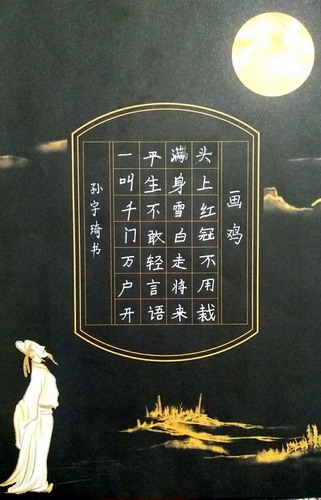 画鸡
头上红冠不用裁
满身雪白走将来
平生不敢轻言语
一叫千门万户开
孙宇琦书